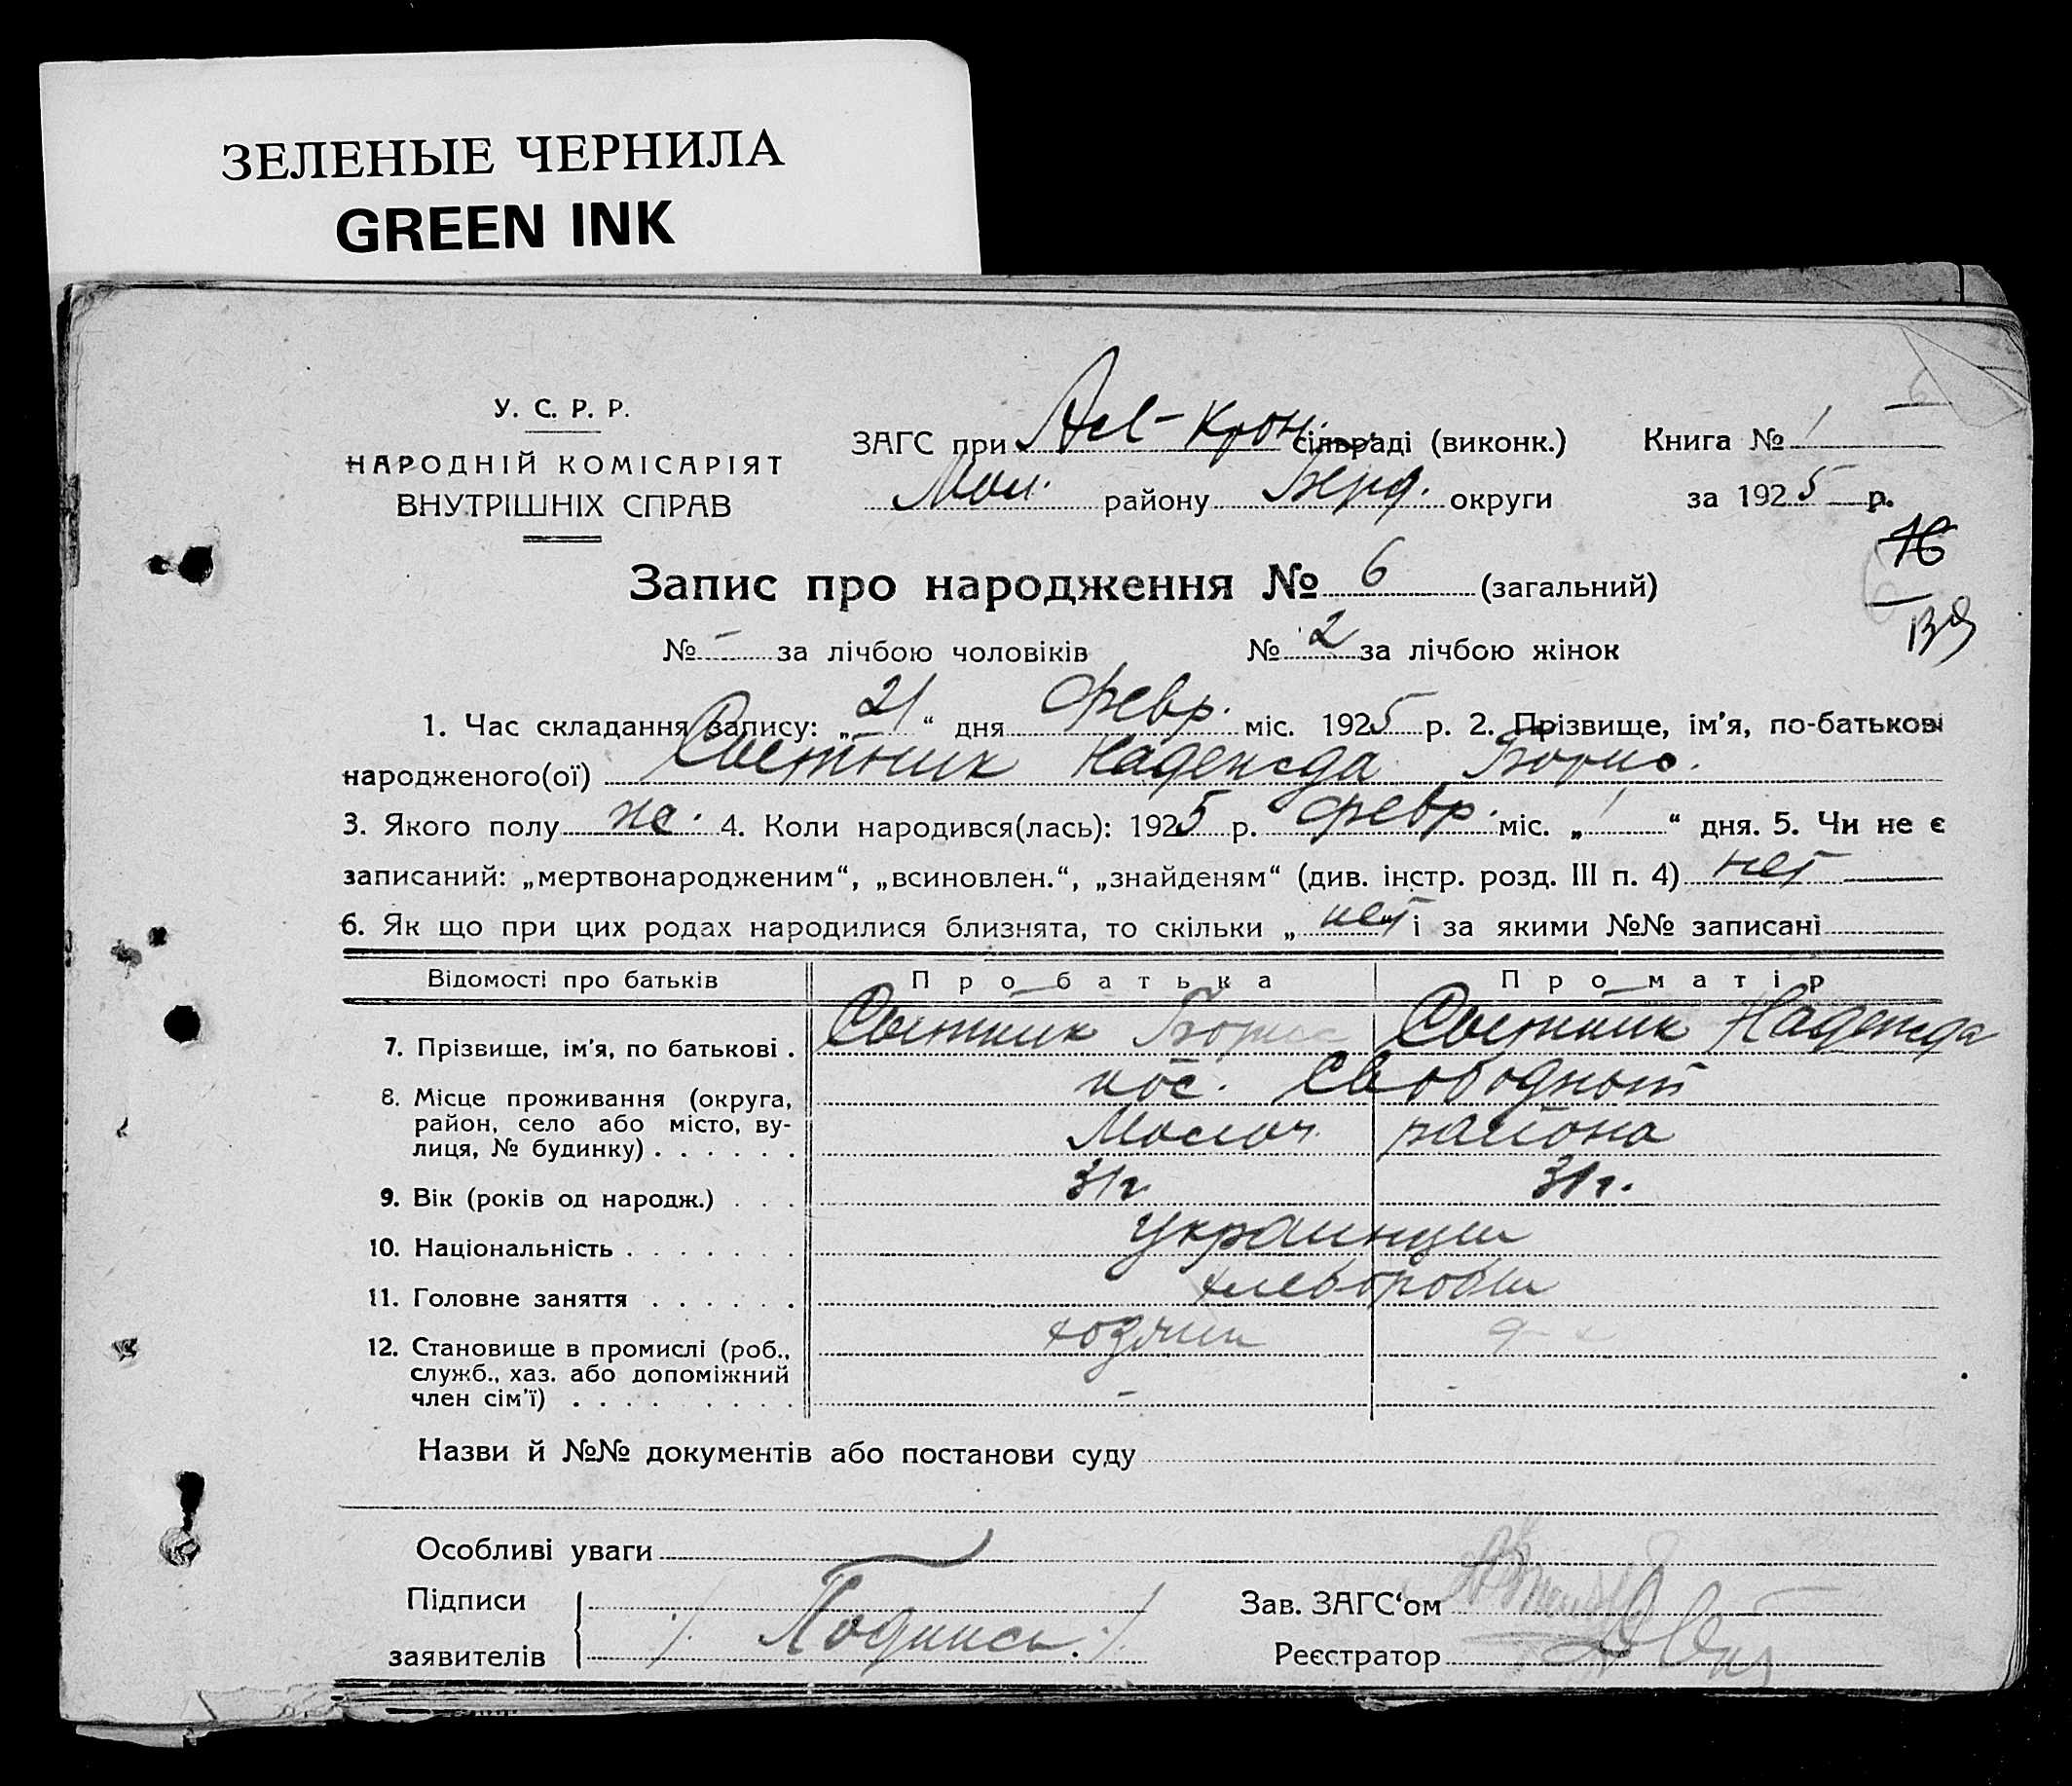 ЗЕЛЕНЫЕ ЧЕРНИЛА
GREEN INK
У. С. Р. Р.
НАРОДНІЙ КОМІСАРІЯТ
ВНУТРІШНІХ СПРАВ
ЗАГС при сільраді (виконк.) Книга № 1
Мол. району Берд. округи за 1925 р.
Запис про народження № 6 (загальний)
№ – за лічбою чоловіків № 2 за лічбою жінок
1. Час складання запису: „21“ дня февр. міс. 1925 р. 2. Прізвище, ім'я, по-батькові
народженого(ої) Светник Надежда Борис.
3. Якого полу ж. 4. Коли народився(лась): 1925 р. февр. міс. „1“ дня. 5. Чи не є
записаний: „мертвонародженим“, „всиновлен.“, „знайденям“ (див. інстр. розд. III п. 4) нет
6. Як що при цих родах народилися близнята, то скільки „ нет і за якими №№ записані
Відомості про батьків Про батька Про матір
7. Прізвище, ім'я, по батькові . Светник Борис Светник Надежда
8. Місце проживання (округа, пос. Свободный
район, село або місто, ву-
лиця, № будинку) . . . . . . Молоч. района
9. Вік (років од народж.) . . . 31г 31г.
10. Національність . . . . . . . украинцы
11. Головне заняття . . . . . . хлеборобы
12. Становище в промислі (роб., хозяин
служб., хаз. або допоміжний
член сім'ї) . . . . . . . . . –
Назви й №№ документів або постанови суду
Особливі уваги
Підписи
заявителів ./. Подпись ./.
Зав. ЗАГС‘ом
Реєстратор